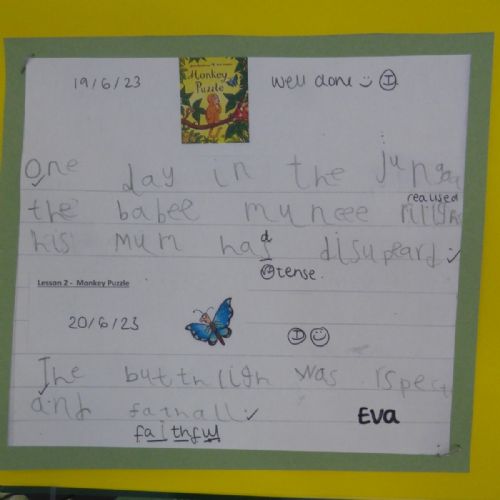 19/6/23
Monkey Puzzle
well done I
One day in the
realised
the babee muncee
his mum had disupeard
d
tense.
Lesson 2 - Monkey Puzzle
20/6/23
I
The was
and fathall
Eva
faithful